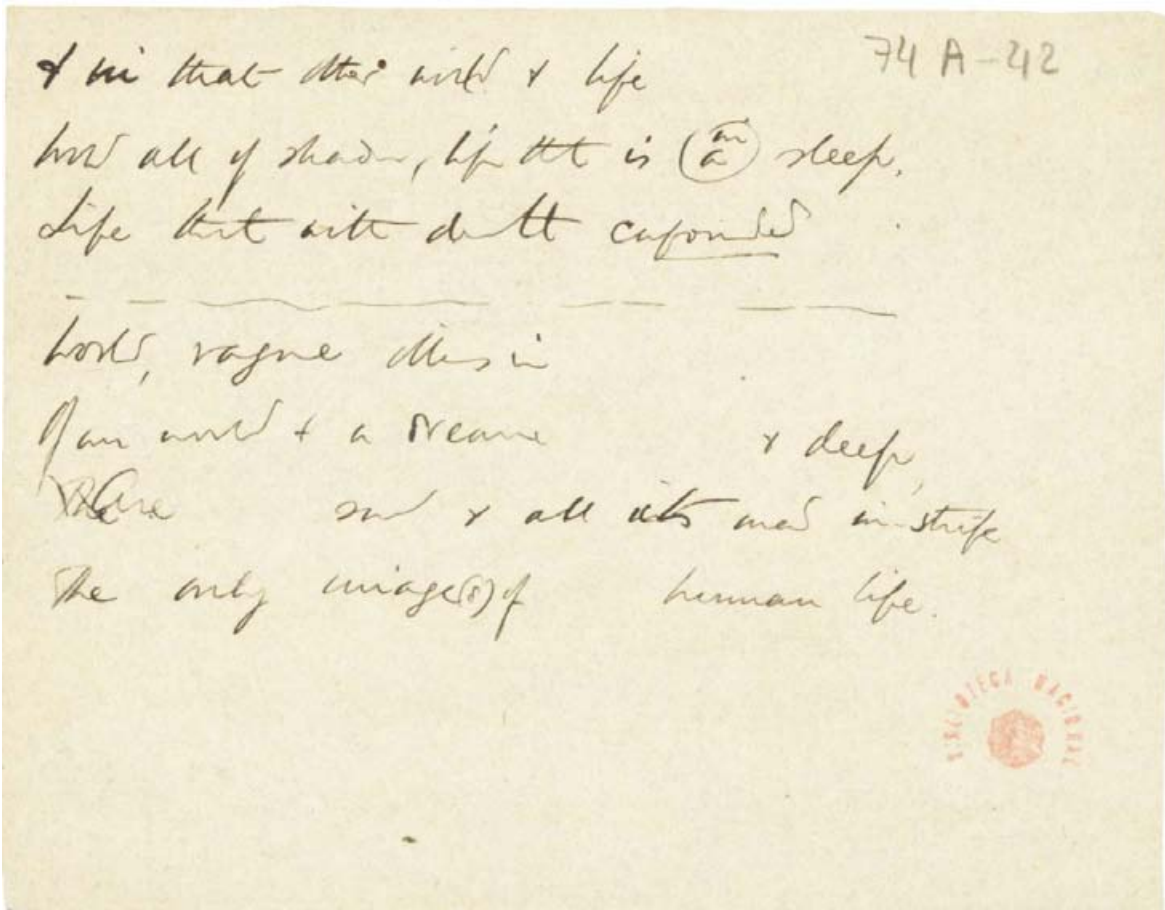 74 A-42
& in that other world & life
World all of shadow, life that is (a in) sleep.
Life that with death confounded
World, vague
Of our world & a dream & deep,
& all its in strife
The only image(s) of human life.
BIBLIOTECA NACIONAL